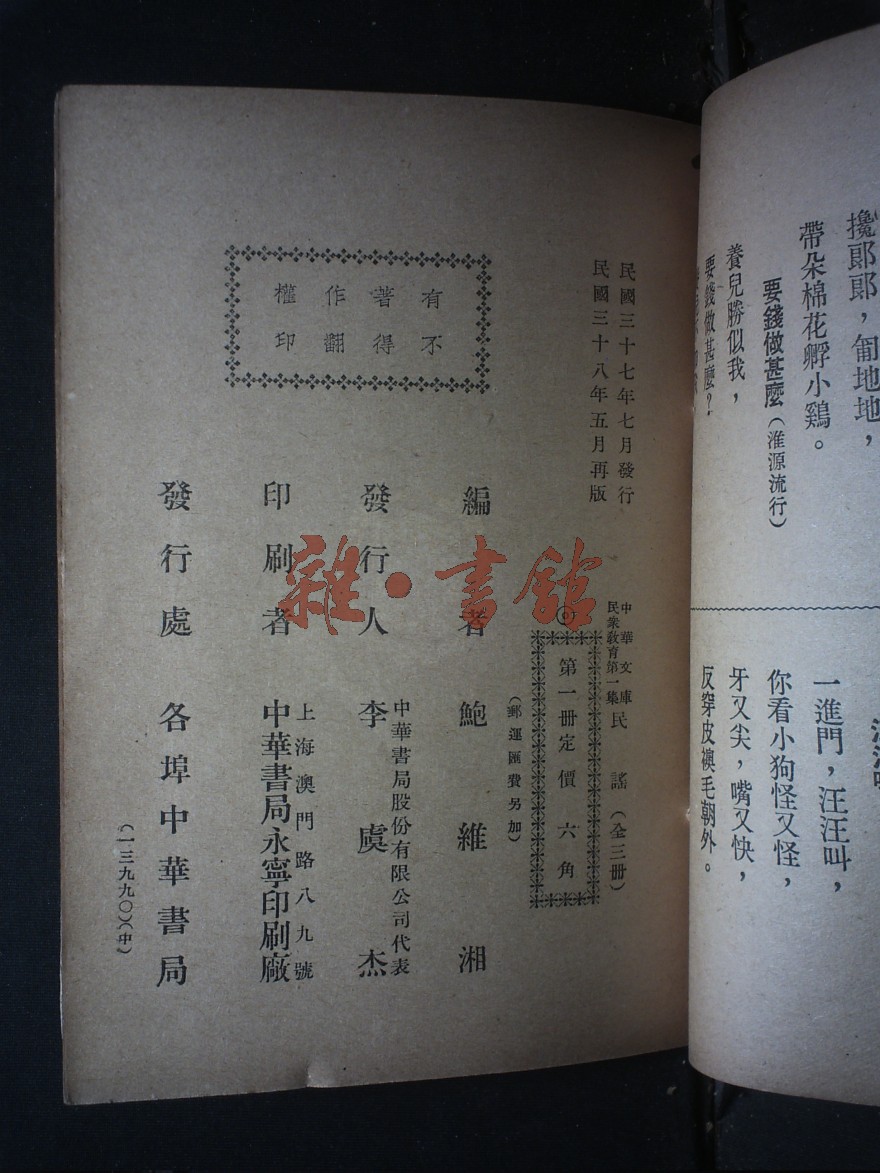 攙郎郎，匍地地，
帶朵棉花孵小鷄。
要錢做甚麼（淮源流行）
養兒勝似我，
要錢做甚麼？
一進門，汪汪叫，
你看小狗怪又怪，
牙又尖，嘴又快，
反穿皮襖毛朝外。
民國三十七年七月發行
民國三十八年五月再版
有著作權
不得翻印
中華文庫
民衆教育第一集
民謠（全三冊）
第一冊定價六角
（郵運匯費另加）
編者 鮑維湘
發行人 李虞杰
中華書局股份有限公司代表
印刷者
上海澳門路八九號
中華書局永寧印刷廠
發行處 各埠中華書局
（一三九九〇）（中）
雜·書館